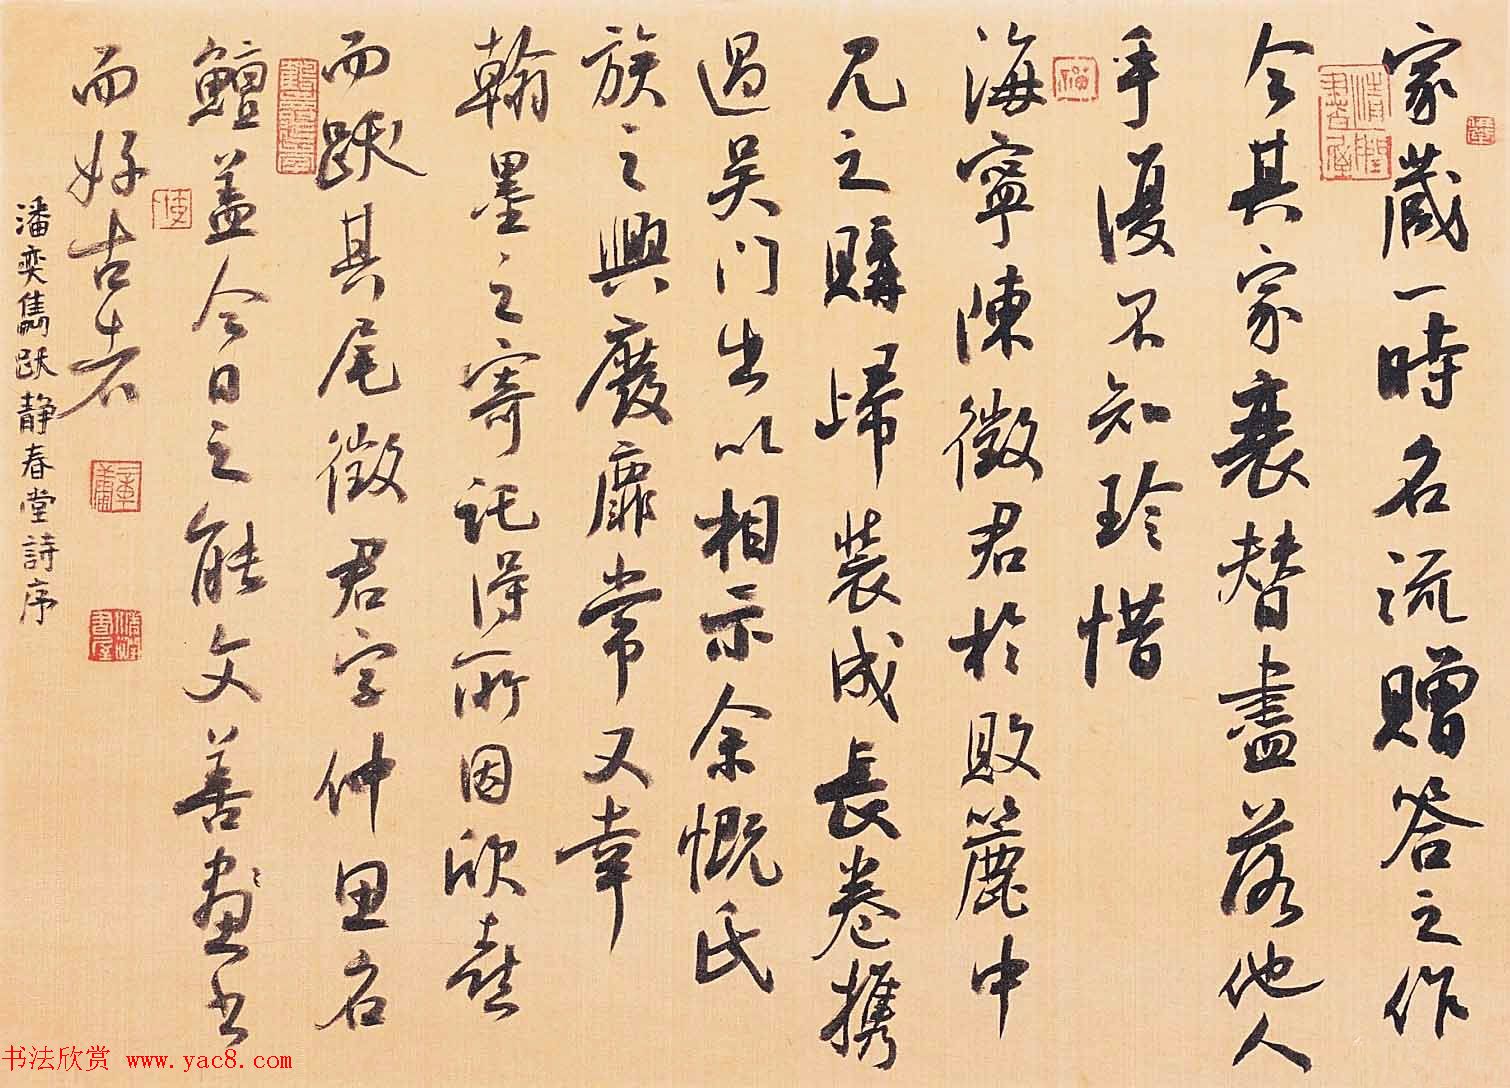 家藏一時名流贈答之作
今其家衰替盡落他人
手漫不知珍惜
海寧陳徵君於敗簏中
見之購歸裝成長卷攜
過吴门出以相示余慨氏
族之興廢靡常又幸
翰墨之寄託得所因欣喜
而跋其尾徵君字仲思名
鱣盖今日之能文善畫書
而好古者
潘奕雋跋静春堂詩序
书法欣赏 www.yac8.com